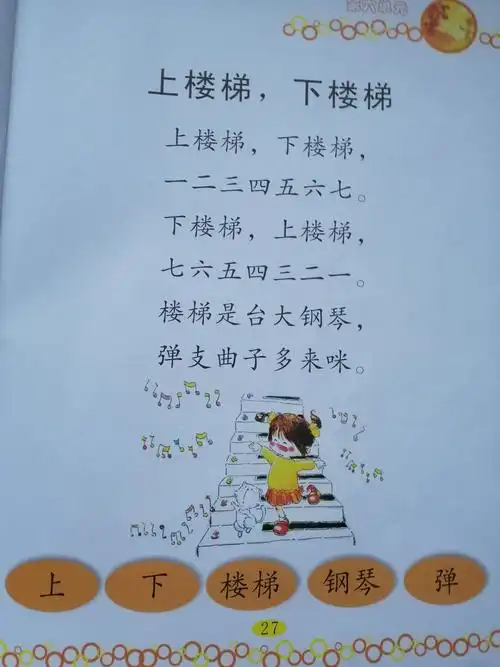 第六单元
上楼梯，下楼梯
上楼梯，下楼梯，
一二三四五六七。
下楼梯，上楼梯，
七六五四三二一。
楼梯是台大钢琴，
弹支曲子多来咪。
上 下 楼梯 钢琴 弹
27